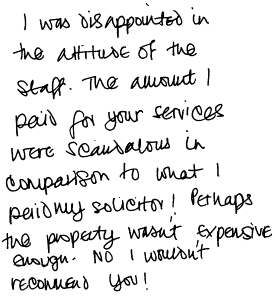 I was disappointed in
the attitude of the
staff. The amount I
paid for your services
were scandalous in
comparison to what I
paid my solicitor! Perhaps
the property wasn't expensive
enough. NO I wouldn't
recommend you!